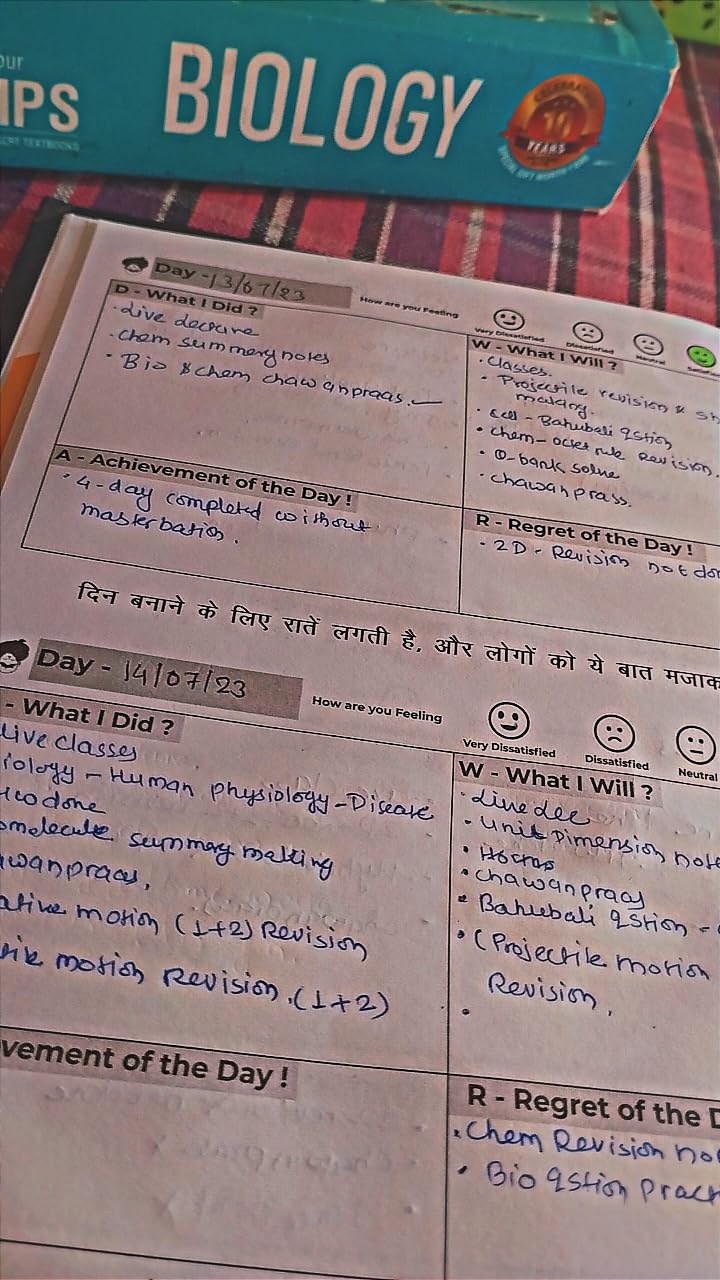 our
IPS
BIOLOGY
10
YEARS
Day - 13/07/23
How are you Feeling
Very Dissatisfied
Dissatisfied
Neutral
D - What I Did ?
• Live decture
• Chem summery notes
• Bio & chem chawanpraas.
W - What I Will ?
• Classes.
• Projectile revision &
making.
• cell - Bahubali qstion
• Chem - octet rule Revision.
• Q-bank solve
• Chawanprass.
A - Achievement of the Day !
• 4-day completed without
masterbation.
R - Regret of the Day !
• 2D - Revision not
दिन बनाने के लिए रातें लगती है, और लोगों को ये बात मजाक
Day - 14/07/23
How are you Feeling
Very Dissatisfied
Dissatisfied
Neutral
- What I Did ?
Live classes
iology - Human physiology - Disease
done
omolecule summary making
awanpraas,
ative motion (1+2) Revision
tile motion Revision. (1+2)
W - What I Will ?
• Live dec
• Unit Dimension note
• Chawanpraas
• Bahubali qstion -
• (Projectile motion
Revision,
vement of the Day !
R - Regret of the D
• Chem Revision no
• Bio qstion pract